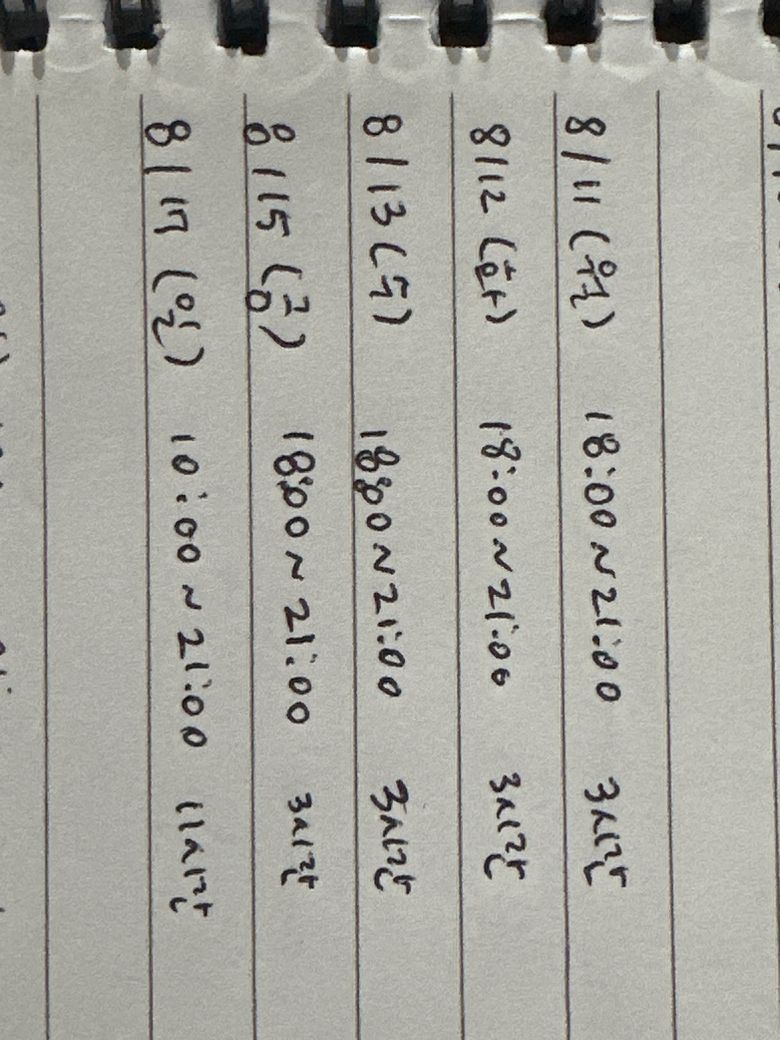 8/11 (월) 18:00 ~ 21:00 3시간
8/12 (화) 18:00 ~ 21:00 3시간
8/13 (수) 18:00 ~ 21:00 3시간
8/15 (금) 18:00 ~ 21:00 3시간
8/17 (일) 10:00 ~ 21:00 11시간